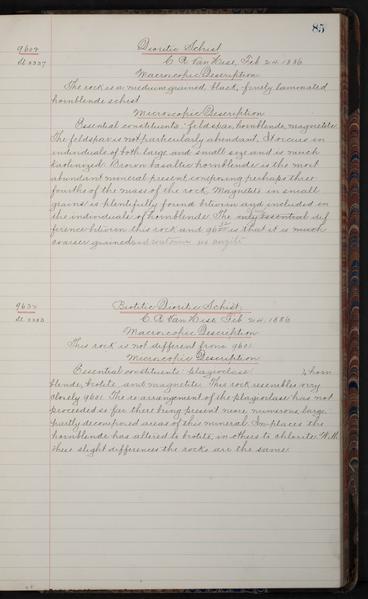 85
9602 Dioritic Schist
C. R. Van Hise, Feb 24, 1886
Macroscopic Description
The rock is a medium grained, black, finely laminated
hornblende schist.
Microscopic Description
Essential constituents: feldspar, hornblende, magnetite.
The feldspar is not particularly abundant. It occurs in
individuals of both large and small size and is much
kaolinized. Brown basaltic hornblende is the most
abundant mineral present composing perhaps three
fourths of the mass of the rock. Magnetite in small
grains is plentifully found between and included in
the individuals of hornblende. The only essential dif
ference between this rock and is that it is much
coarser grained and contains no augite
Biotitic Dioritic Schist.
C. R. Van Hise Feb 24, 1886
Macroscopic Description
This rock is not different from 9601
Microscopic Description
Essential constituents: plagioclase, horn
blende, biotite and magnetite. This rock resembles very
closely 9601. The rearrangement of the plagioclase has not
proceeded so far there being present more numerous large,
partly decomposed areas of this mineral. In places the
hornblende has altered to biotite, in others to chlorite. With
these slight differences the rocks are the same.